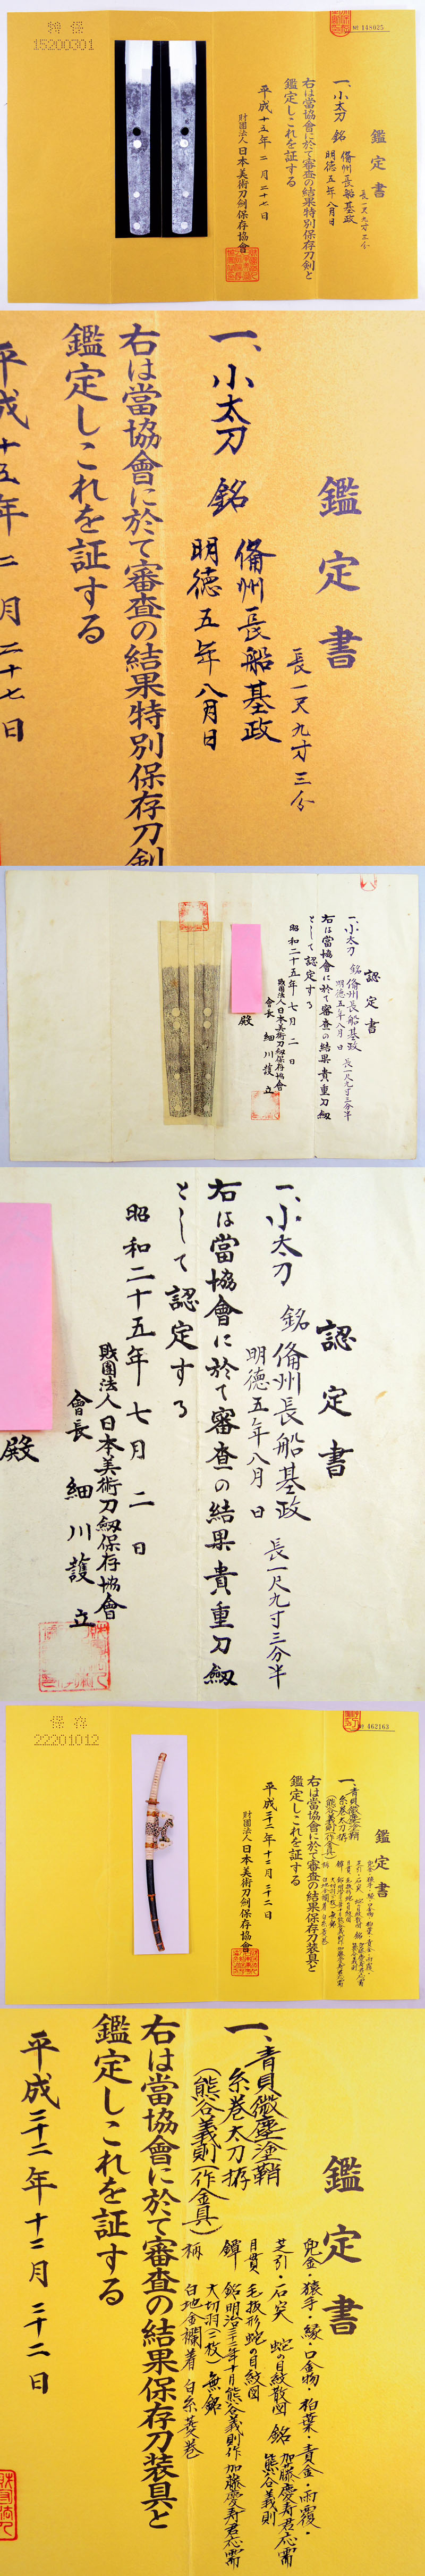 特保
15200301
№ 148025
鑑定書
長一尺九寸三分
一、小太刀 銘 備州長船基政
明徳五年八月日
右は當協會に於て審査の結果特別保存刀剣と
鑑定しこれを証する
平成十五年二月二十七日
財團法人日本美術刀劍保存協會
鑑定書
長一尺九寸三分
一、小太刀 銘 備州長船基政
明徳五年八月日
右は當協會に於て審査の結果特別保存刀剣
鑑定しこれを証する
平成十五年二月二十七日
認定書
一、小太刀 銘 備州長船基政 長一尺九寸三分半
明徳五年八月 日
右は當協會に於て審査の結果貴重刀劔
として認定する
昭和二十五年七月二日
財團法人日本美術刀劔保存協會
會長 細川護立
殿
認定書
一、小太刀 銘 備州長船基政 長一尺九寸三分半
明徳五年八月 日
右は當協會に於て審査の結果貴重刀劔
として認定する
昭和二十五年七月二日
財團法人日本美術刀劔保存協會
會長 細川護立
殿
保存
22201012
№ 462163
鑑定書
兜金・猿手・縁・口金物・柏葉・責金・雨覆・
芝引・石突 蛇の目紋散図 銘 加藤慶寿君応需
熊谷義則
一、青貝微塵塗鞘
糸巻太刀拵
(熊谷義則一作金具)
右は當協會に於て審査の結果保存刀装具と
鑑定しこれを証する
平成二十二年十二月二十二日
財團法人日本美術刀劍保存協會
鑑定書
兜金・猿手・縁・口金物・柏葉・責金・雨覆・
芝引・石突 蛇の目紋散図 銘 加藤慶寿君応需
熊谷義則
目貫 毛抜形蛇の目紋図
鐔 銘 明治三十三年十月熊谷義則作 加藤慶寿君応需
大切羽(二枚)無銘
柄 白地金襴着 白糸菱巻
一、青貝微塵塗鞘
糸巻太刀拵
(熊谷義則一作金具)
右は當協會に於て審査の結果保存刀装具と
鑑定しこれを証する
平成二十二年十二月二十二日